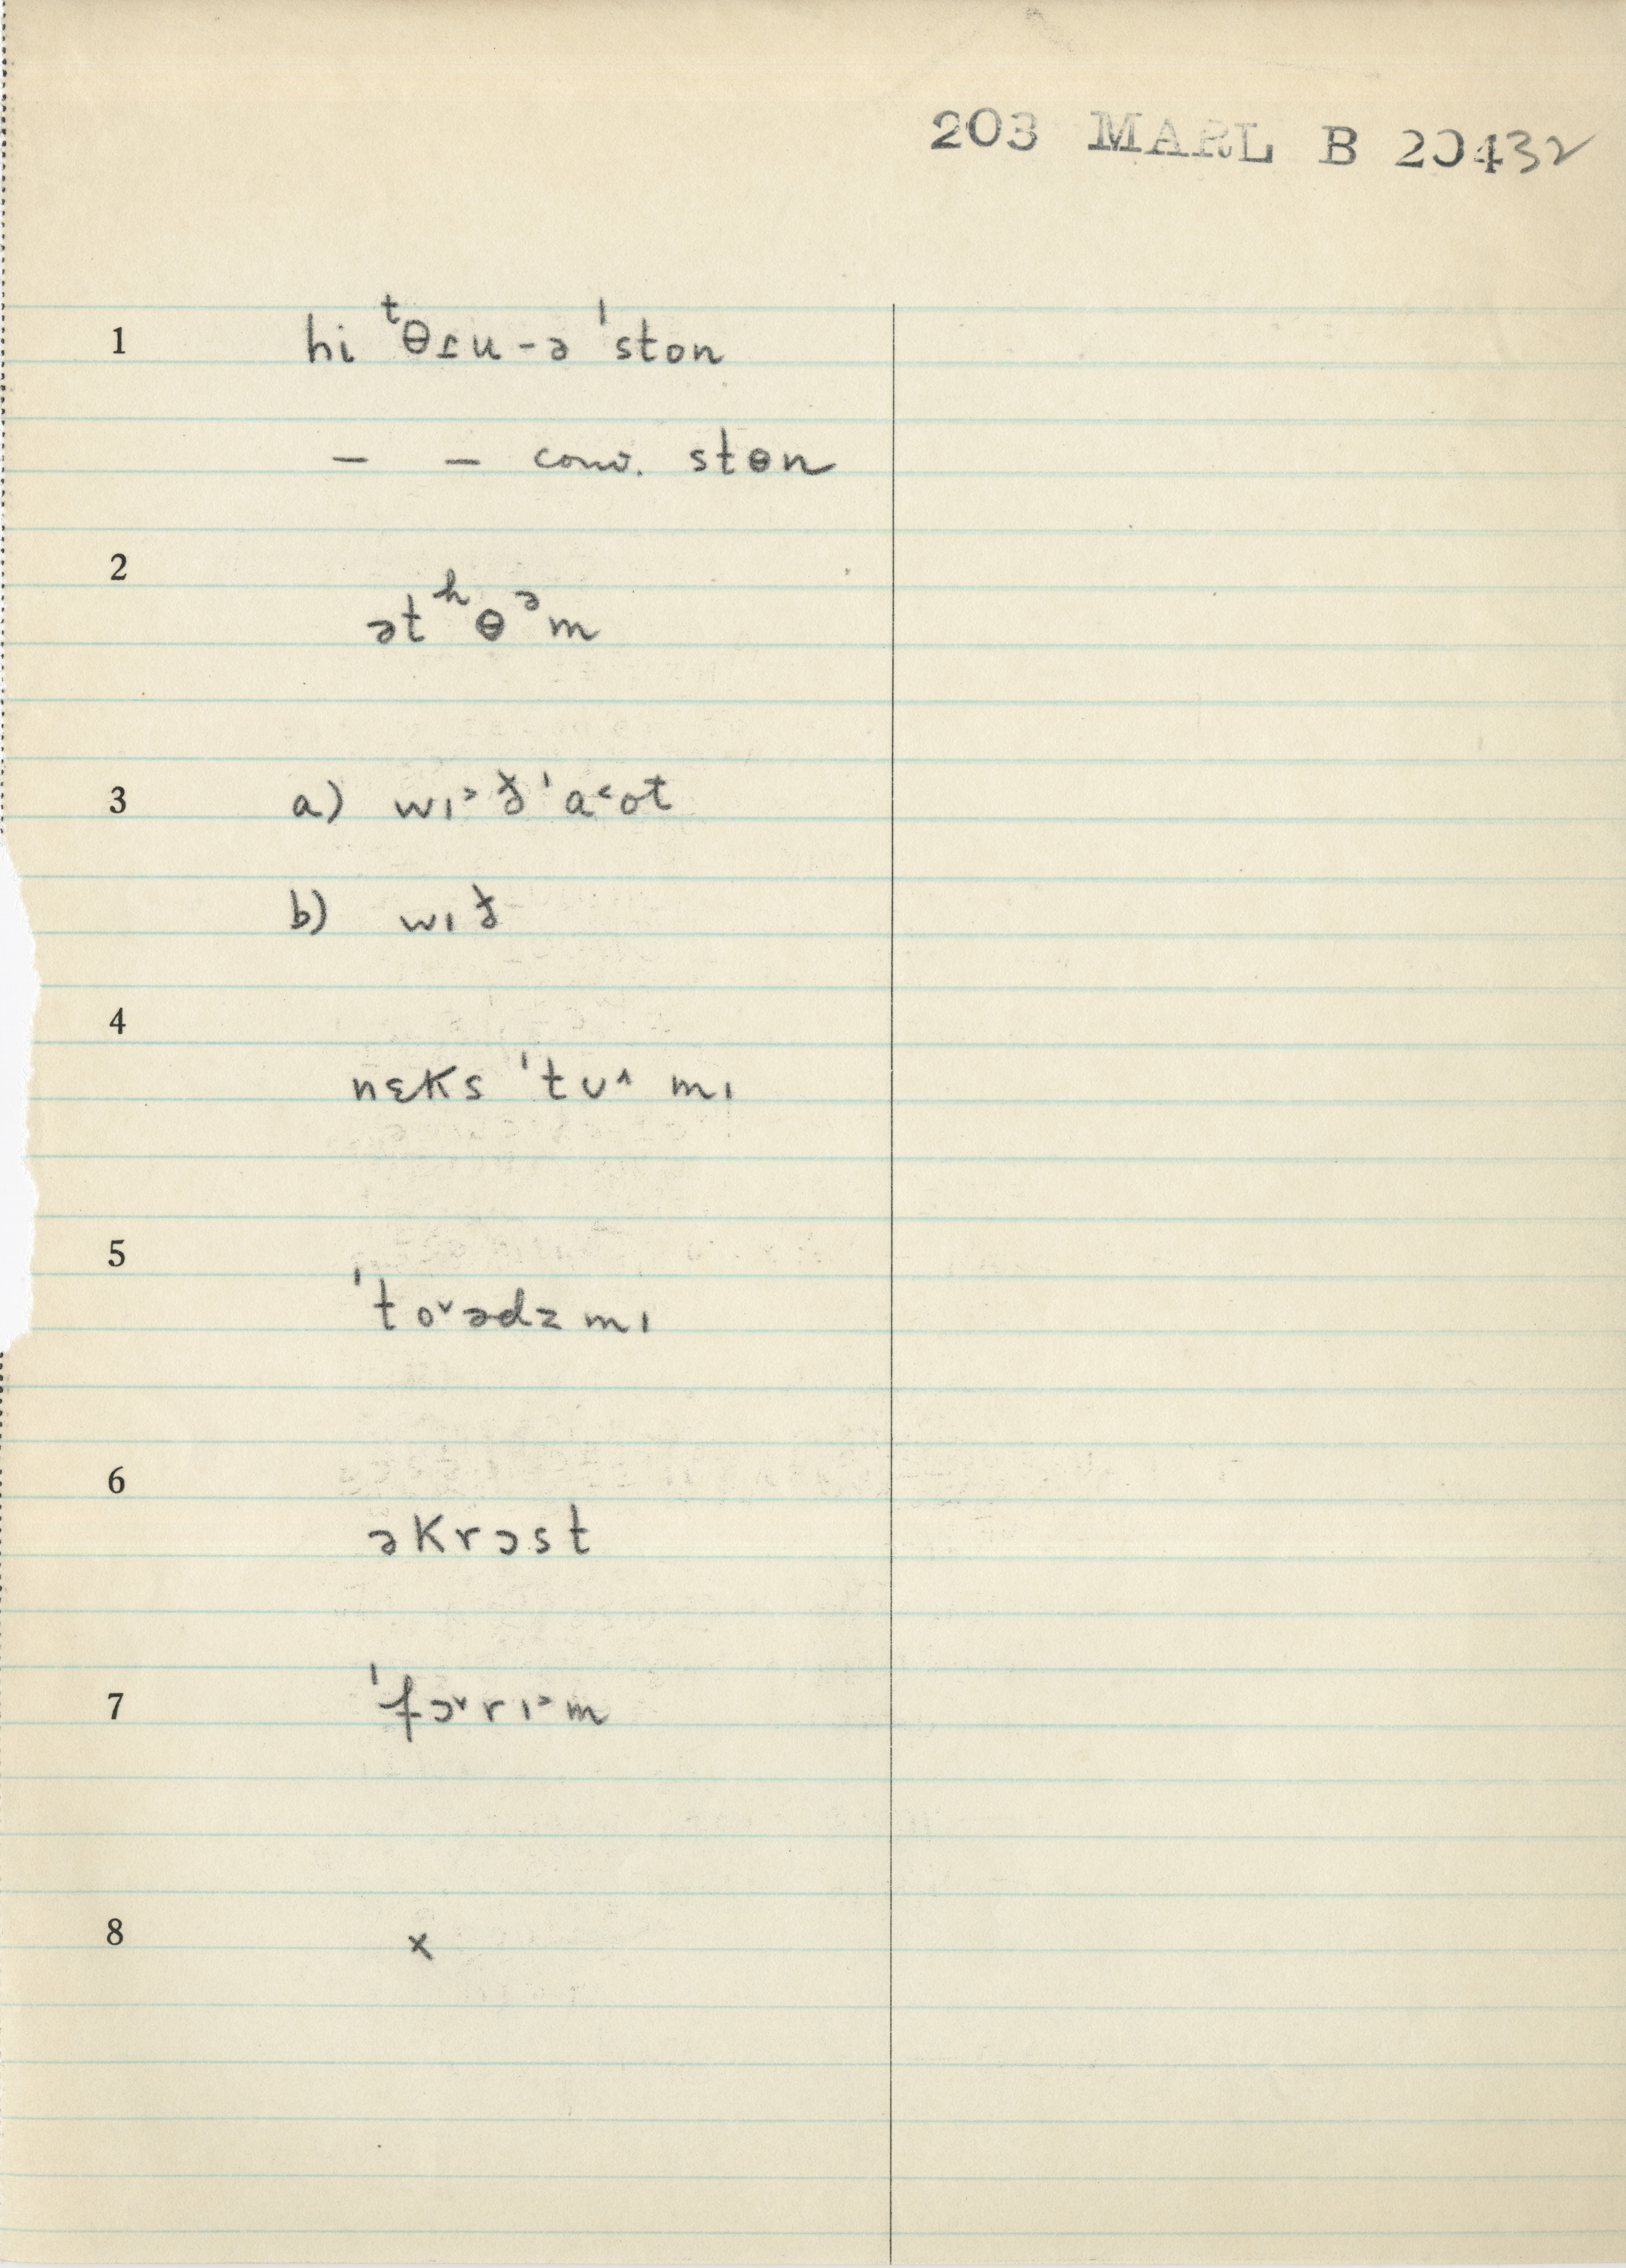 203 MARL B 20432
1 hi ᵗθɾu-ə ˈston
– – conv. stɵn
2 ətʰɵᵊm
3 a) wɪ˃ðˈa˂ot
b) wɪð
4 nɛks ˈtʊ˄ mɪ
5 ˈto˅ədz mɪ
6 əkrɔst
7 ˈfɔ˅rɪ˃m
8 x